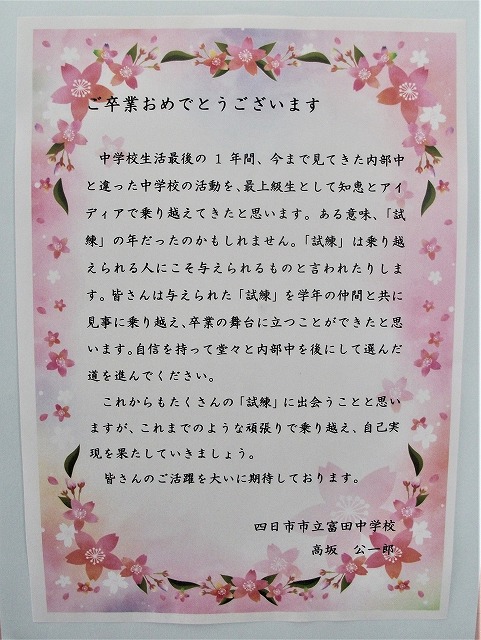 ご卒業おめでとうございます
中学校生活最後の１年間、今まで見てきた内部中
と違った中学校の活動を、最上級生として知恵とアイ
ディアで乗り越えてきたと思います。ある意味、「試
練」の年だったのかもしれません。「試練」は乗り越
えられる人にこそ与えられるものと言われたりしま
す。皆さんは与えられた「試練」を学年の仲間と共に
見事に乗り越え、卒業の舞台に立つことができたと思
います。自信を持って堂々と内部中を後にして選んだ
道を進んでください。
これからもたくさんの「試練」に出会うことと思い
ますが、これまでのような頑張りで乗り越え、自己実
現を果たしていきましょう。
皆さんのご活躍を大いに期待しております。
四日市市立富田中学校
高坂　公一郎